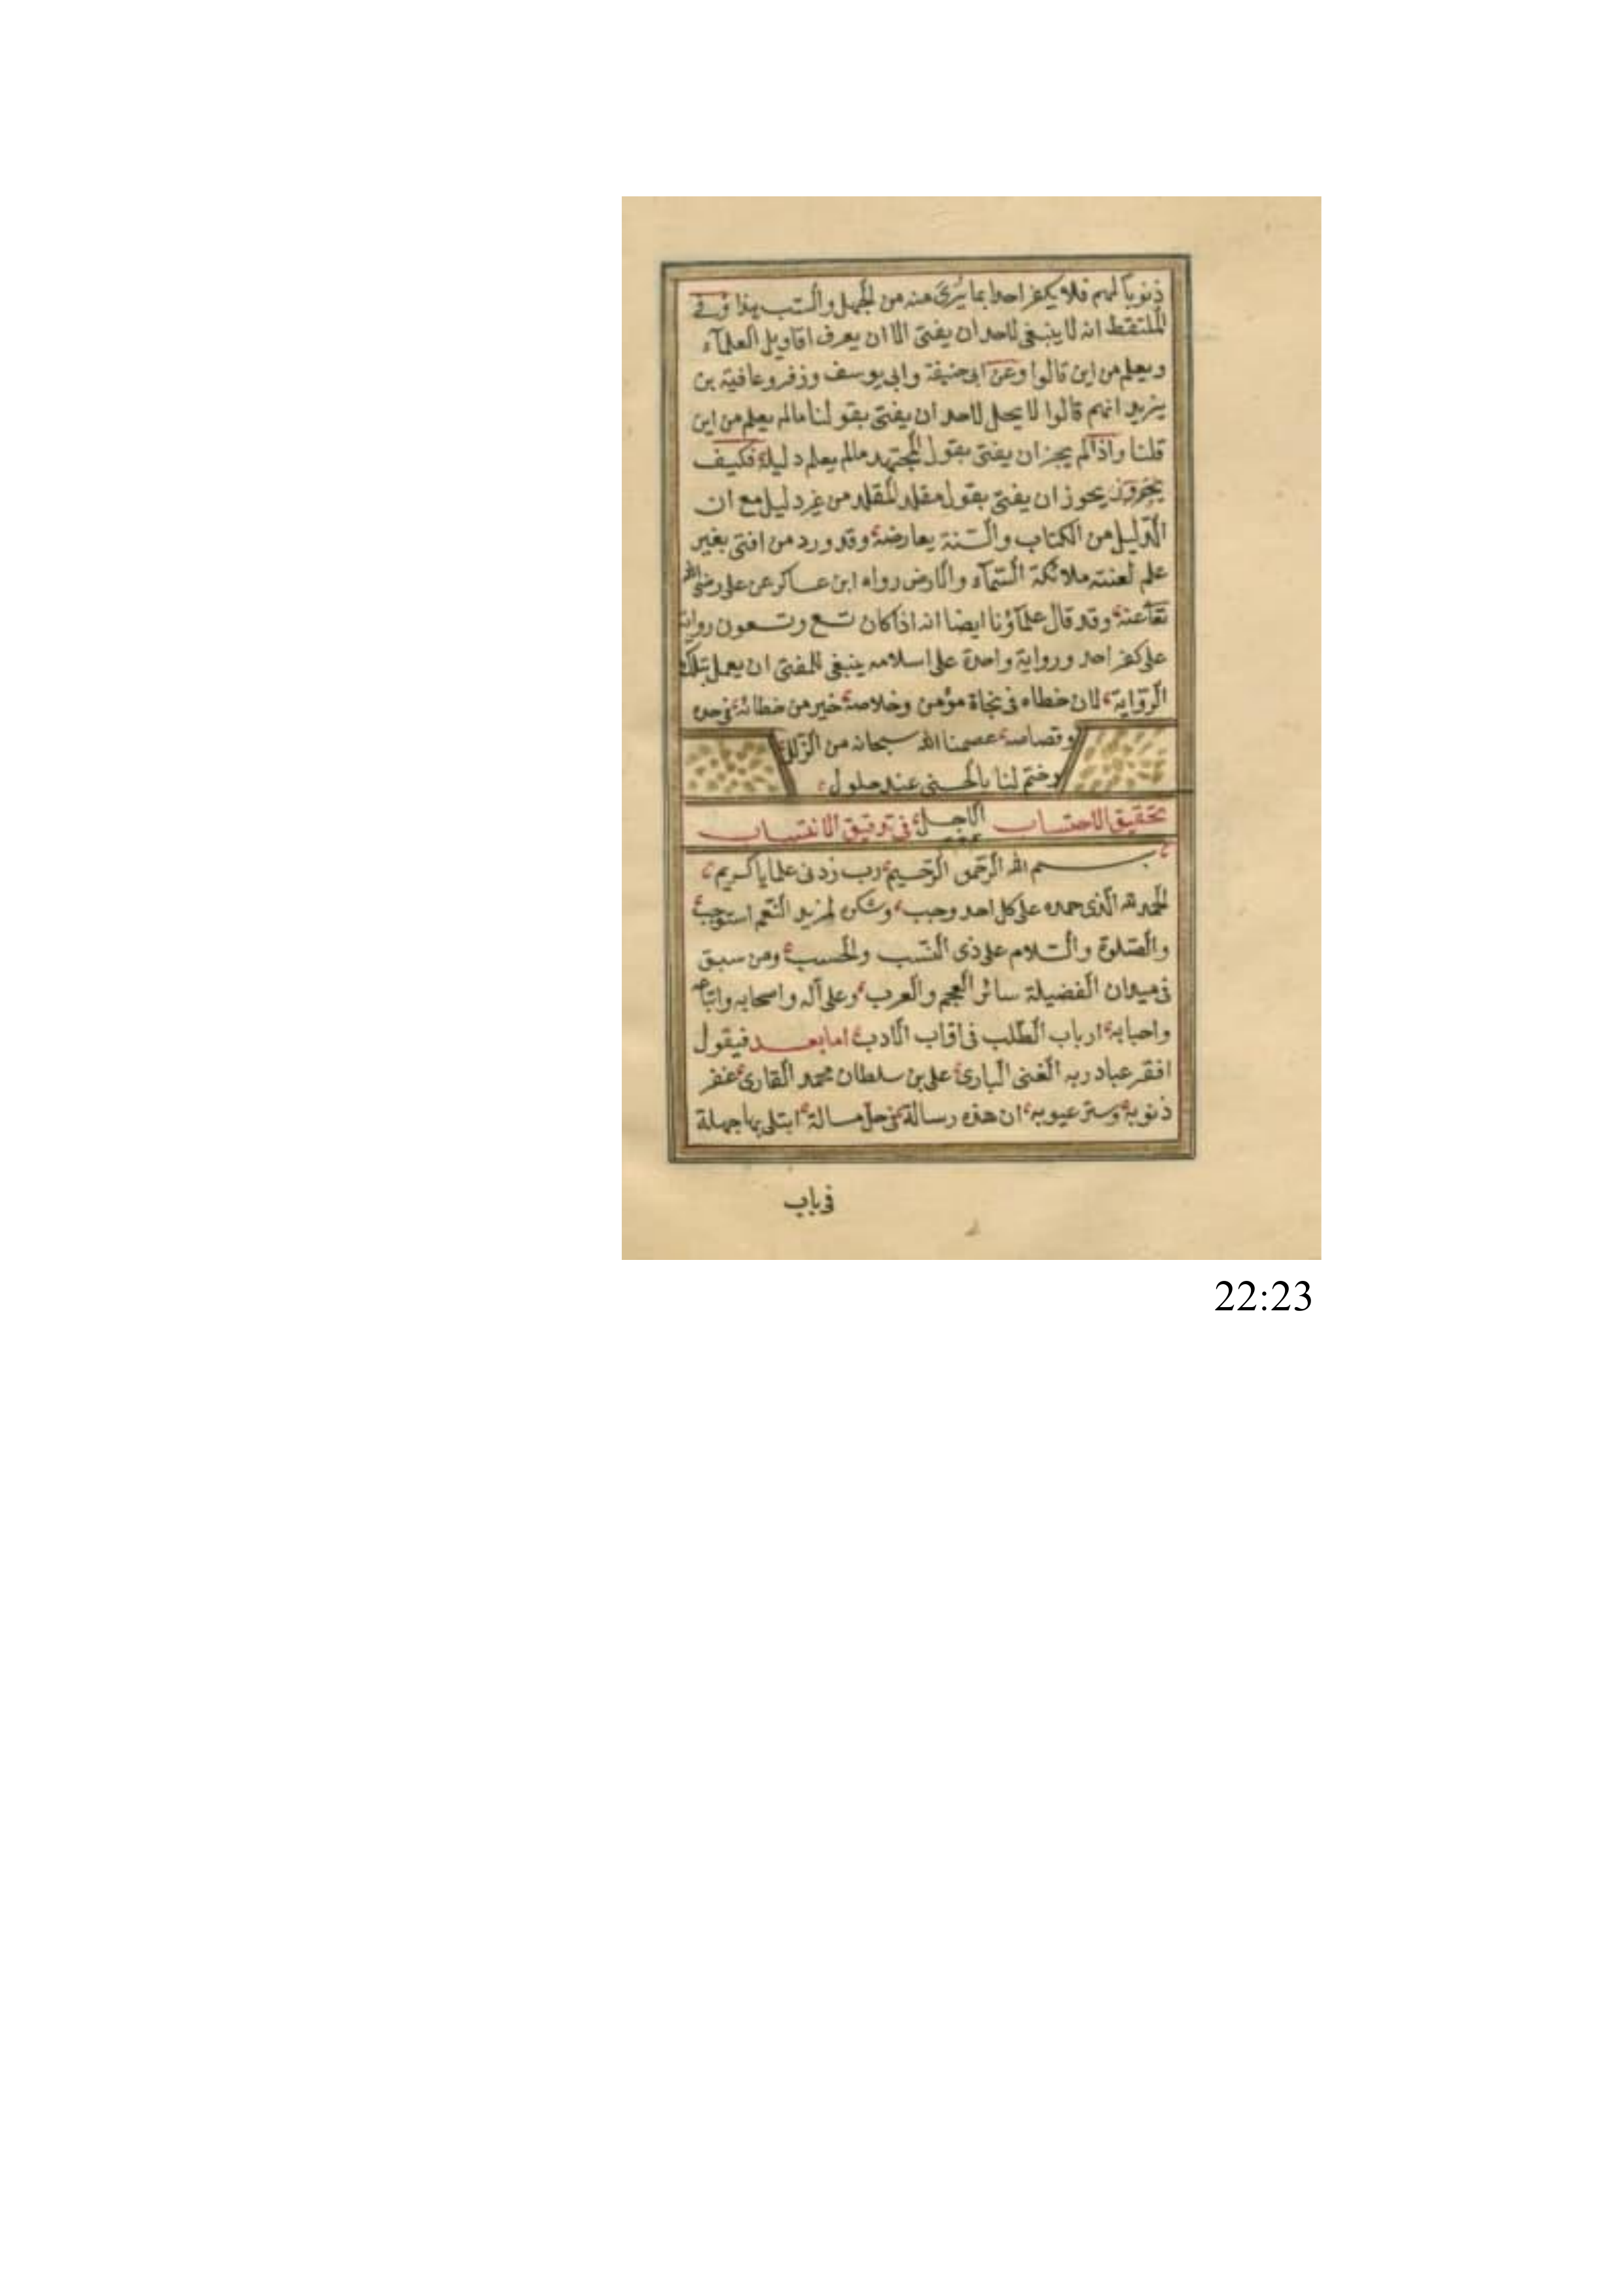 ذنوبا لهم فلا يكفر احدا بما يرى منه من الجهل والسب هذا وفى
الملتقط انه لا ينبغى لاحد ان يفتى الا ان يعرف اقاويل العلمآء
ويعلم من اين قالوا وعن ابى حنيفة وابى يوسف وزفر وعافية بن
يزيد انهم قالوا لا يحل لاحد ان يفتى بقولنا مالم يعلم من اين
قلنا واذا لم يجز ان يفتى بقول المجتهد مالم يعلم دليله فكيف
يجوز ان يفتى بقول مقلد المقلد من غير دليل مع ان
الدليل من الكتاب والسنة يعارضه وقد ورد من افتى بغير
علم لعنته ملائكة السمآء والارض رواه ابن عساكر عن على رضى الله
تعا عنه وقد قال علمآؤنا ايضا انه اذا كان تسع وتسعون رواية
على كفر احد ورواية واحدة على اسلامه ينبغى للمفتى ان يعمل بتلك
الرواية لان خطاه فى نجاة مؤمن وخلاصه خير من خطائه فى حده
وقصاصه عصمنا الله سبحانه من الزلل
وختم لنا بالحسنى عند حلول
الاجل
تحقيق الاحتساب فى تدقيق الانتساب
بسم الله الرحمن الرحيم رب زدنى علما يا كريم
الحمد لله الذى حمده على كل احد وجب وشكره لمزيد النعم استوجب
والصلوة والسلام على ذى النسب والحسب ومن سبق
فى ميدان الفضيلة سائر العجم والعرب وعلى آله واصحابه واتباعه
واحبابه ارباب الطلب فى اداب الادب اما بعد فيقول
افقر عباد ربه الغنى البارى على بن سلطان محمد القارى غفر
ذنوبه وستر عيوبه ان هذه رسالة فى حل مسالة ابتلى بها جهلة
فى باب
22:23